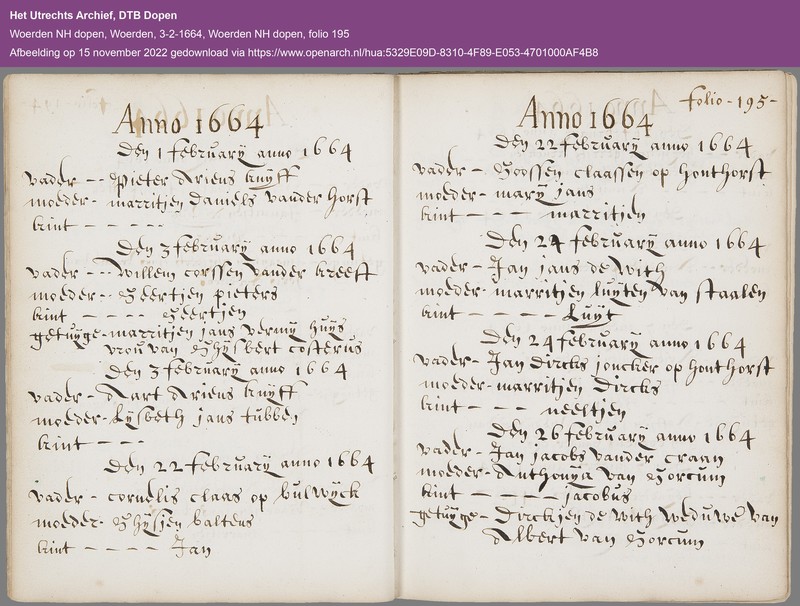 Het Utrechts Archief, DTB Dopen
Woerden NH dopen, Woerden, 3-2-1664, Woerden NH dopen, folio 195
Afbeelding op 15 november 2022 gedownload via https://www.openarch.nl/hua:5329E09D-8310-4F89-E053-4701000AF4B8
Anno 1664
Den 1 februarij anno 1664
vader -- pieter Ariens kuyff
moeder- marritien Daniels vander horst
kint - - - - -
Den 3 februarij anno 1664
vader --- willem corssen vander kreeft
moeder-- Geertien pieters
kint - - - - Geertien
getuyge- marritien jans vermij huijs
vrou van Ghijsbert costerus
Den 3 februarij anno 1664
vader - Aart Ariens kuyff
moeder- Lijsbeth jans tubben
kint - - - -
Den 22 februarij anno 1664
vader - cornelis claas op bulwijck
moeder- Ghijsjen baltens
kint - - - - Jan
folio - 195 -
Anno 1664
Den 22 februarij anno 1664
vader - Goossen claassen op honthorst
moeder- marij jans
kint - - - marritien
Den 24 februarij anno 1664
vader- Jan jans de with
moeder- marritien luyten van staalen
kint - - - - Luyt
Den 24 februarij anno 1664
vader- Jan Dircks joncker op honthorst
moeder- marritien Dircks
kint - - - neeltien
Den 26 februarij anno 1664
vader- Jan jacobs vander craan
moeder- Anthonya van Gorcum
kint - - - - jacobus
getuyge- Dirckjen de with weduwe van
Albert van Gorcum